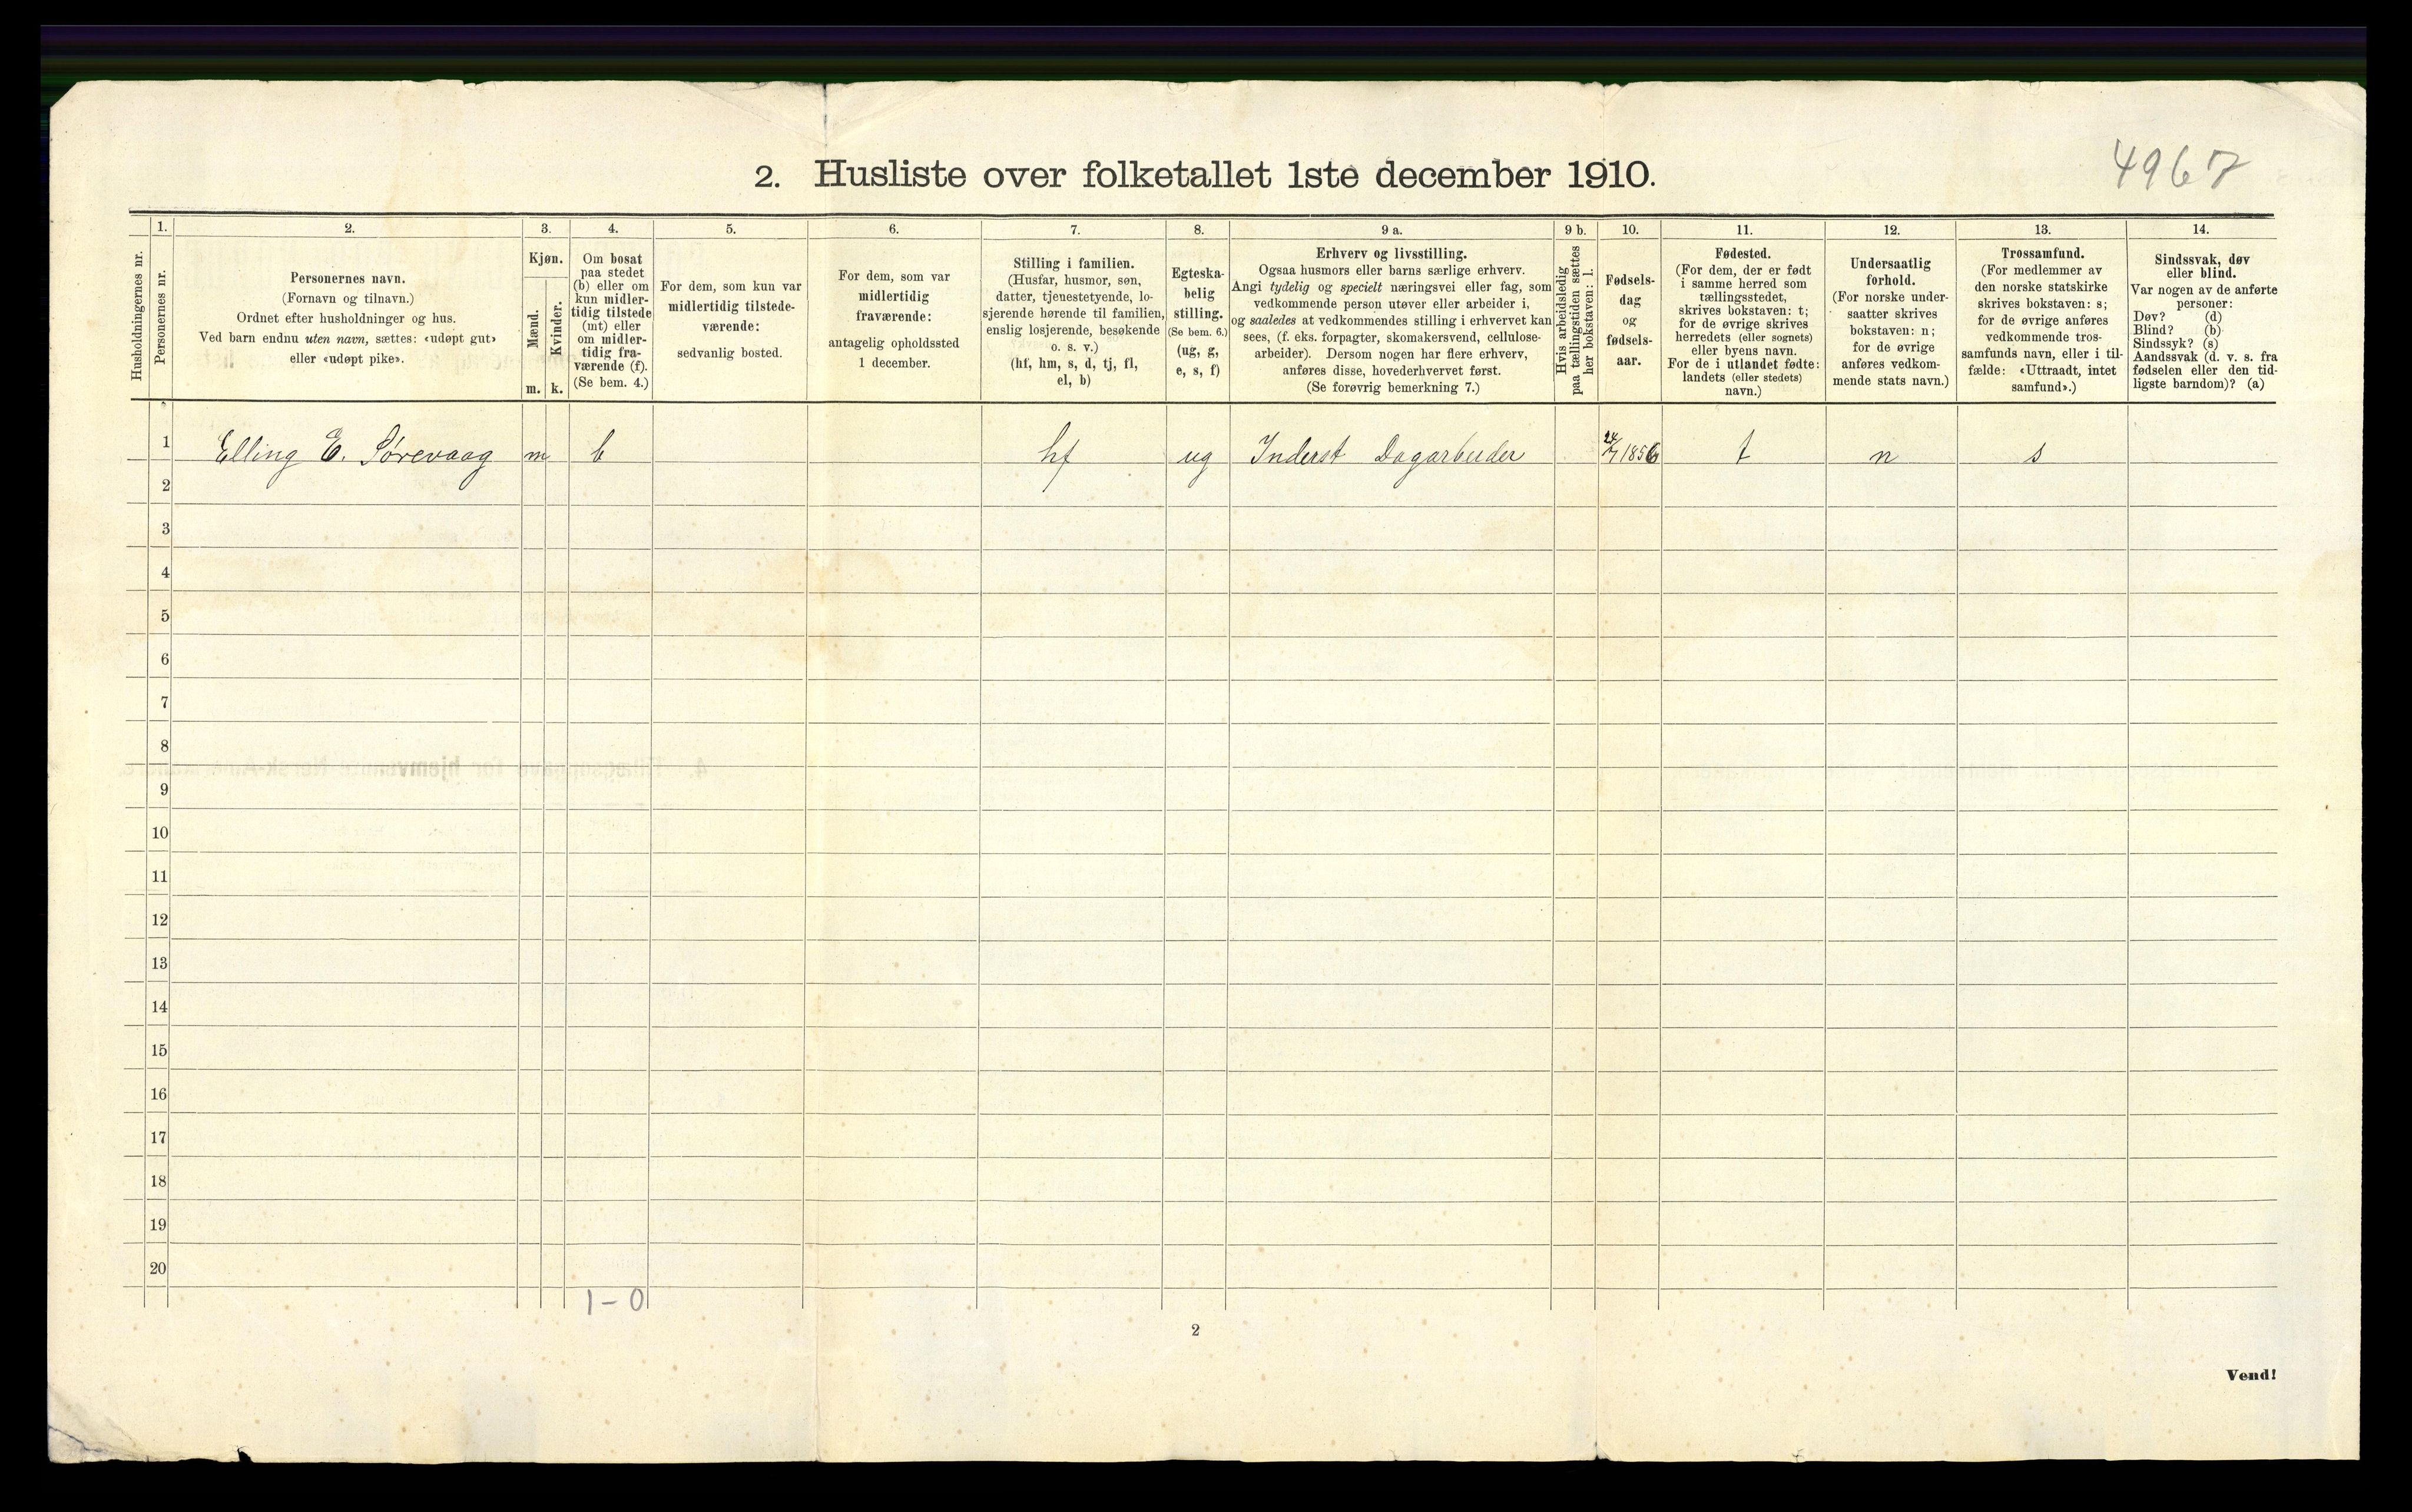 4967
2. Husliste over folketallet 1ste december 1910.
Husholdningernes nr.
1.
Personernes nr.
2.
Personernes navn.
(Fornavn og tilnavn.)
Ordnet efter husholdninger og hus.
Ved barn endnu uten navn, sættes: «udøpt gut»
eller «udøpt pike».
3.
Kjøn.
Mænd.
Kvinder.
m. k.
4.
Om bosat
paa stedet
(b) eller om
kun midler-
tidig tilstede
(mt) eller
om midler-
tidig fra-
værende (f).
(Se bem. 4.)
5.
For dem, som kun var
midlertidig tilstede-
værende:
sedvanlig bosted.
6.
For dem, som var
midlertidig
fraværende:
antagelig opholdssted
1 december.
7.
Stilling i familien.
(Husfar, husmor, søn,
datter, tjenestetyende, lo-
sjerende hørende til familien,
enslig losjerende, besøkende
o. s. v.)
(hf, hm, s, d, tj, fl,
el, b)
8.
Egteska-
belig
stilling.
(Se bem. 6.)
(ug, g,
e, s, f)
9 a.
Erhverv og livsstilling.
Ogsaa husmors eller barns særlige erhverv.
Angi tydelig og specielt næringsvei eller fag, som
vedkommende person utøver eller arbeider i,
og saaledes at vedkommendes stilling i erhvervet kan
sees, (f. eks. forpagter, skomakersvend, cellulose-
arbeider). Dersom nogen har flere erhverv,
anføres disse, hovederhvervet først.
(Se forøvrig bemerkning 7.)
9 b.
Hvis arbeidsledig
paa tællingstiden sættes
her bokstaven: l.
10.
Fødsels-
dag
og
fødsels-
aar.
11.
Fødested.
(For dem, der er født
i samme herred som
tællingsstedet,
skrives bokstaven: t;
for de øvrige skrives
herredets (eller sognets)
eller byens navn.
For de i utlandet fødte:
landets (eller stedets)
navn.)
12.
Undersaatlig
forhold.
(For norske under-
saatter skrives
bokstaven: n;
for de øvrige
anføres vedkom-
mende stats navn.)
13.
Trossamfund.
(For medlemmer av
den norske statskirke
skrives bokstaven: s;
for de øvrige anføres
vedkommende tros-
samfunds navn, eller i til-
fælde: «Uttraadt, intet
samfund».)
14.
Sindssvak, døv
eller blind.
Var nogen av de anførte
personer:
Døv? (d)
Blind? (b)
Sindssyk? (s)
Aandssvak (d. v. s. fra
fødselen eller den tid-
ligste barndom)? (a)
1 Elling E. Sørevaag m b hf ug Inderst Dagarbeider 1856 t n s
2
3
4
5
6
7
8
9
10
11
12
13
14
15
16
17
18
19
20
1-0
2
Vend!